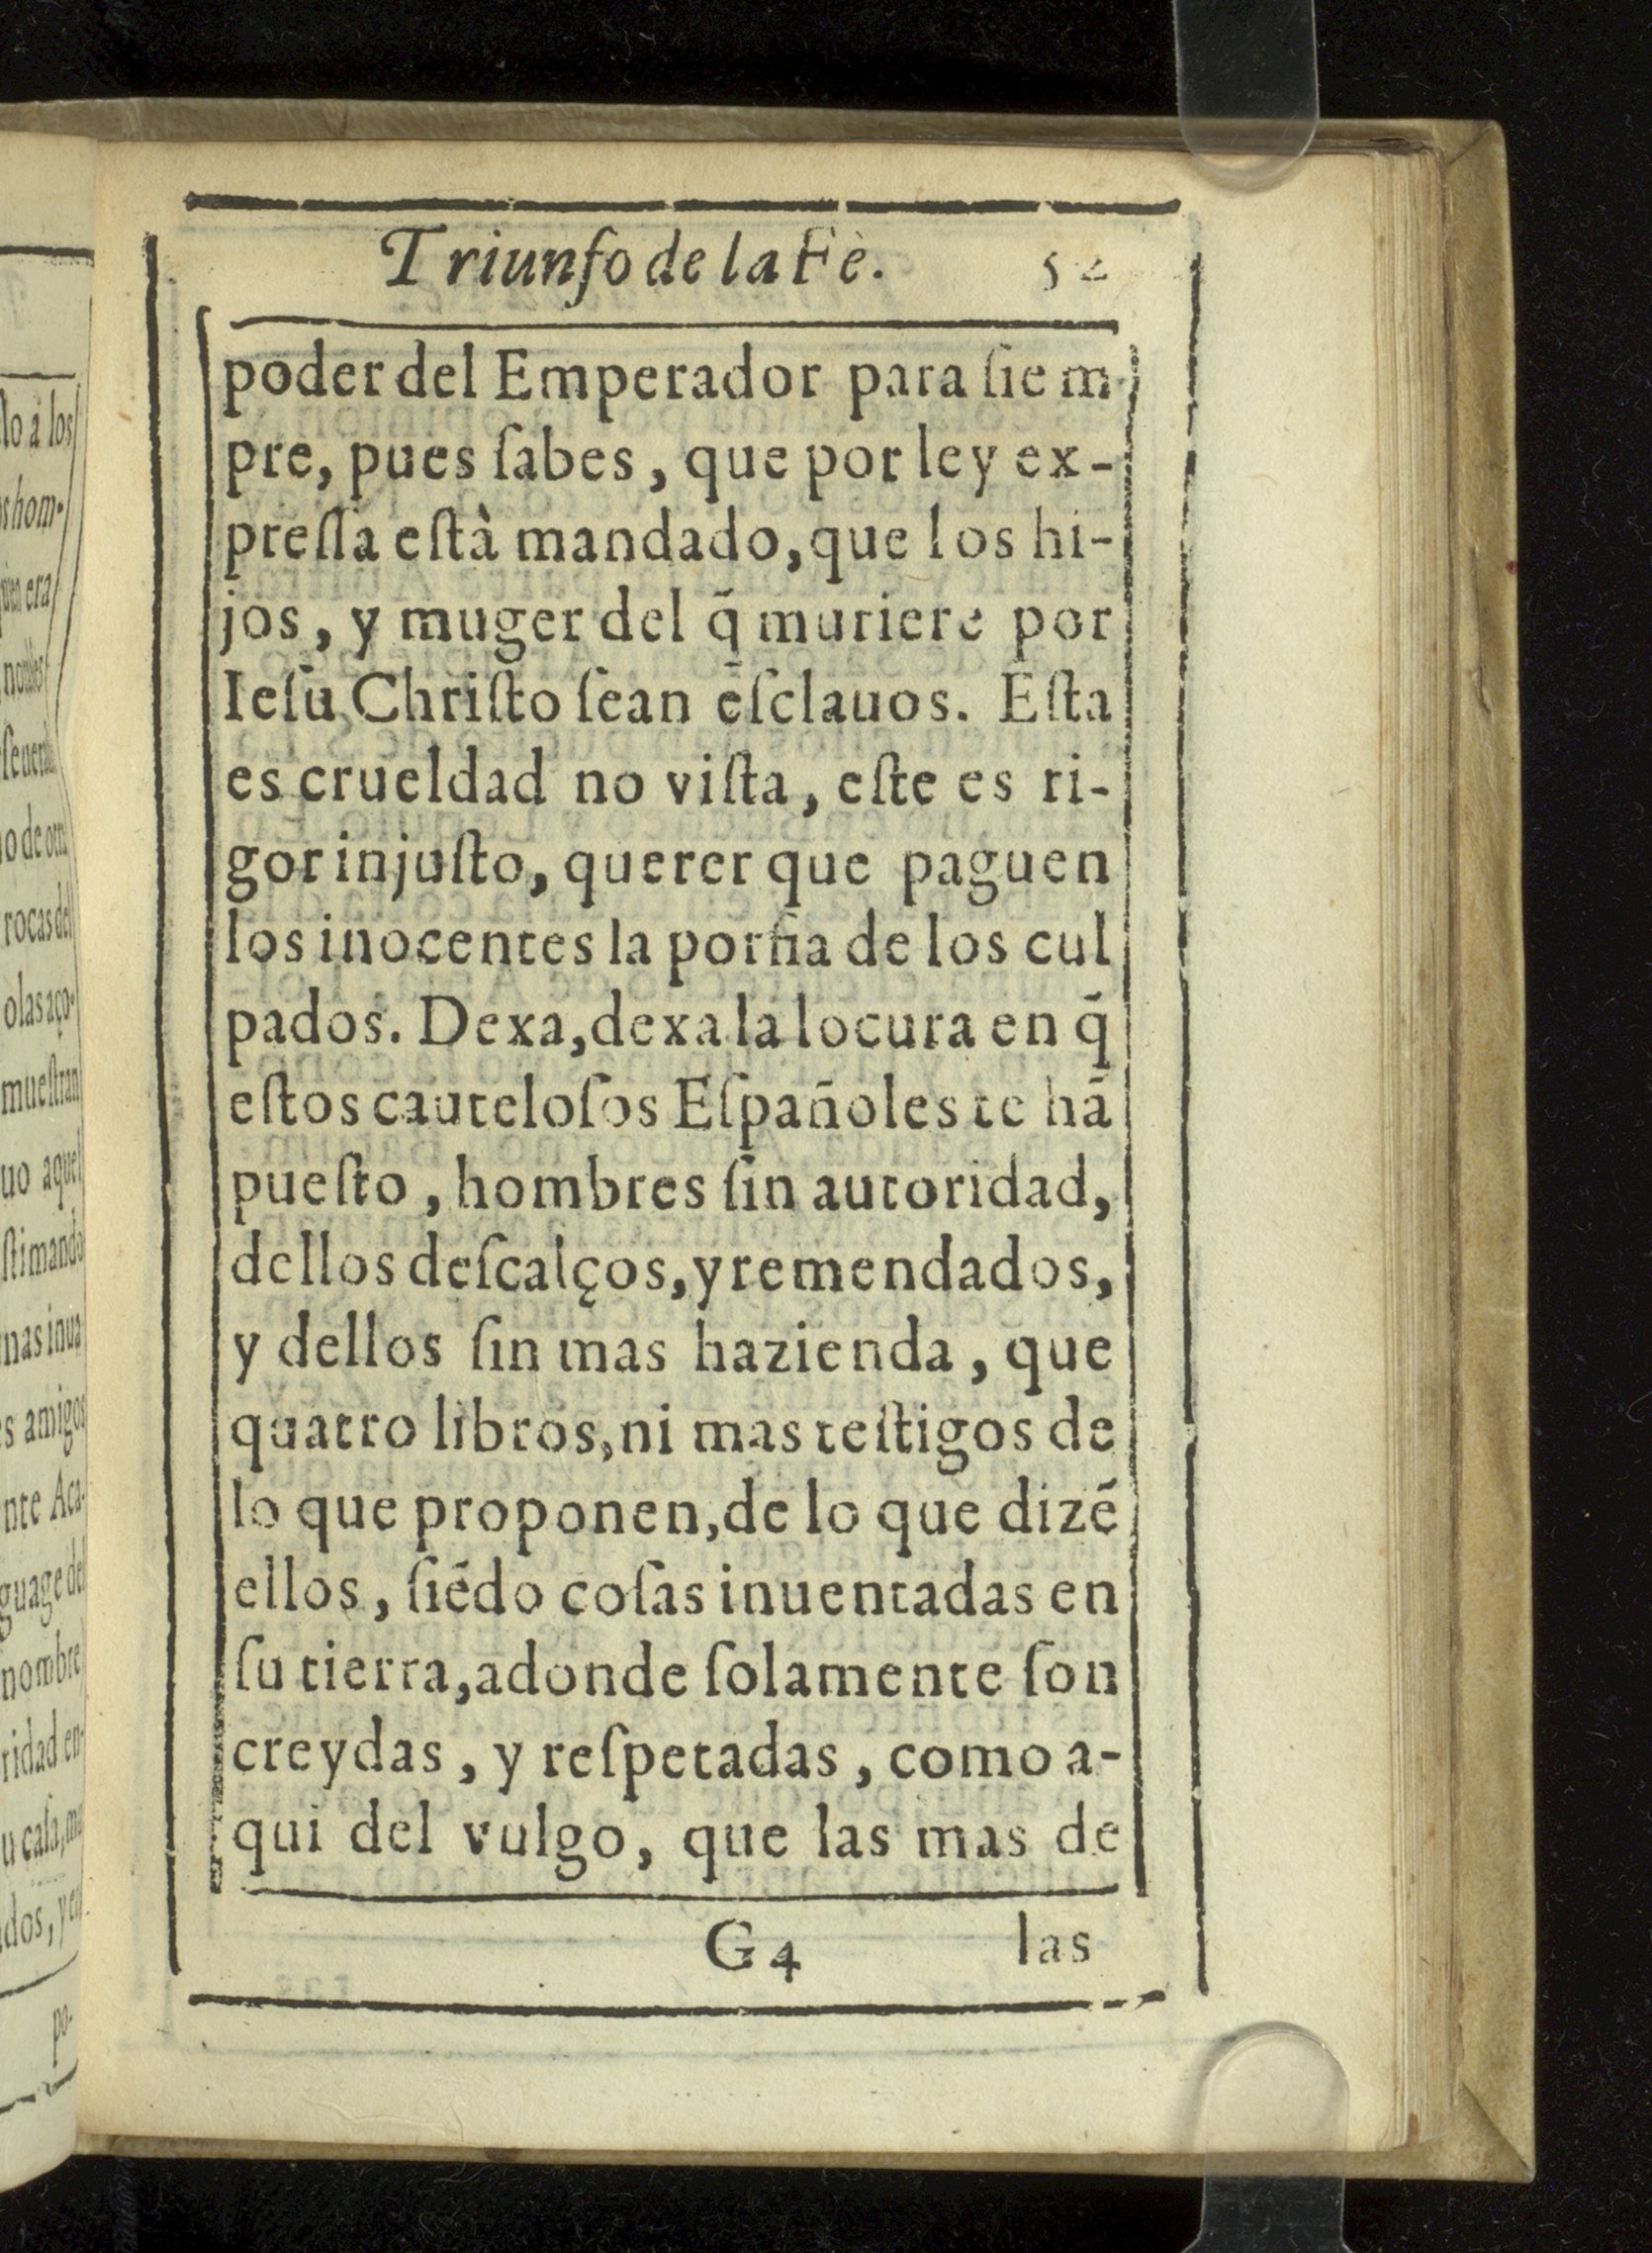 Triunfo de la Fè. 52
poder del Emperador para ſiem
pre, pues ſabes, que por ley ex-
preſſa eſtà mandado, que los hi-
jos, y muger del q̃ muriere por
Ieſu Chriſto ſean eſclauos. Eſta
es crueldad no viſta, eſte es ri-
gor injuſto, querer que paguen
los inocentes la porfia de los cul
pados. Dexa, dexa la locura en q̃
eſtos cauteloſos Eſpañoles te hã
pueſto, hombres ſin autoridad,
dellos deſcalços, y remendados,
y dellos ſin mas hazienda, que
quatro libros, ni mas teſtigos de
lo que proponen, de lo que dizẽ
ellos, ſiẽdo coſas inuentadas en
ſu tierra, adonde ſolamente ſon
creydas, y reſpetadas, como a-
qui del vulgo, que las mas de
G4 las
lo a los
s hom-
era
o de otra
rocas del
olas aço-
mueſtran
uo aquel
ſtimando
nas inua
s amigos
nte Aca-
guage del
nombre
ridad en-
u caſa, mu
dos, y en
po-